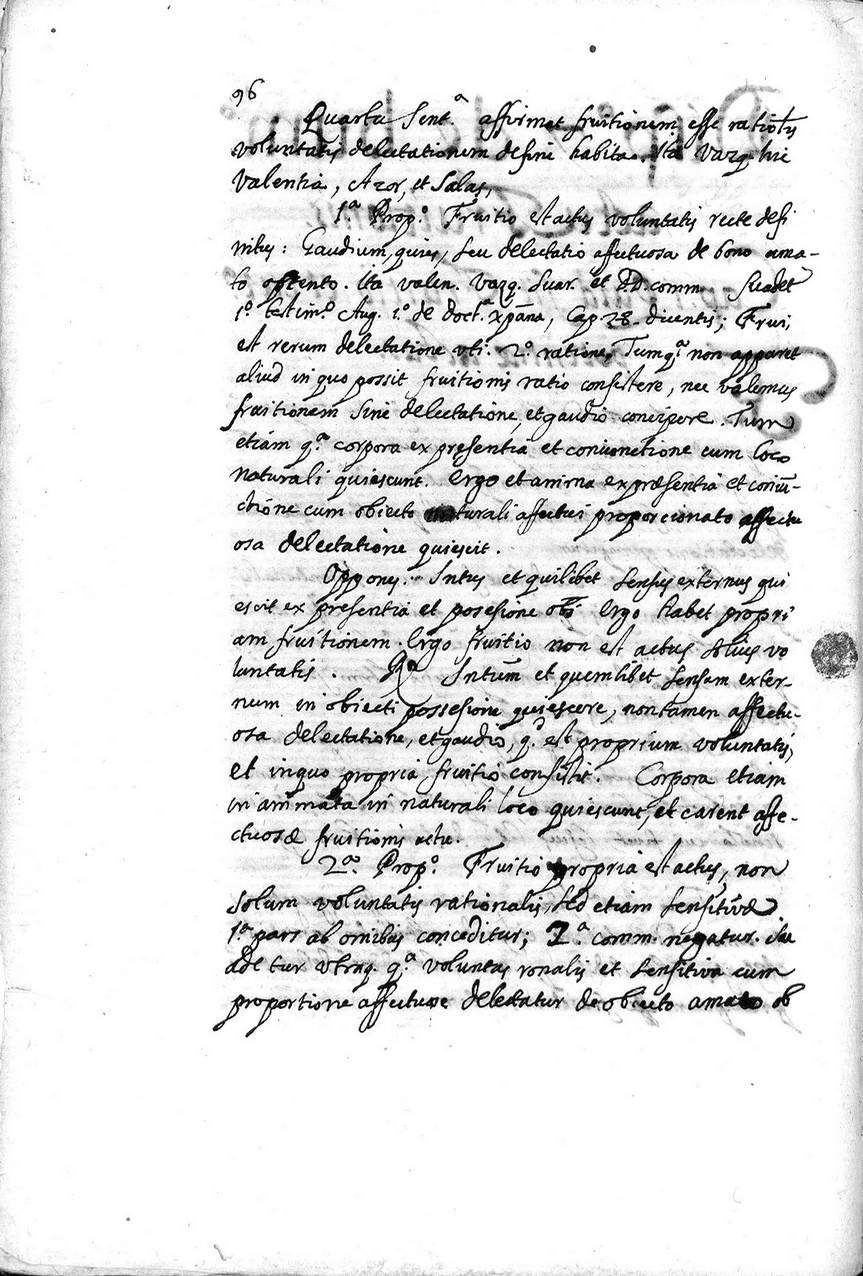 96
Quarta Sent.ª affirmat fruitionem esse
voluntatis delectationem de fine habita. Ita Vazq. hic
Valentia, Azor, et Salas,
1.ª Prop.º Fruitio est actus voluntatis recte defi
nitus: Gaudium, quies, seu delectatio affectuosa de bono ama-
to obtento. Ita valen. Vazq. Suar. et DD. comm. Suadet
1.º testim.º Aug. 1.º de doct.ª xpãna, Cap 28. dicentis; Frui,
est rerum delectatione vti. 2.º ratione, Tum q.ª non apparet
aliud in quo possit fruitionis ratio consistere, nec valemus
fruitionem sine delectatione, et gaudio concipere. Tum
etiam q.ª corpora ex presentia et coniunctione cum loco
naturali quiescunt. Ergo et anima ex præsentia et coniũ-
ctione cum obiecto naturali affectui proporcionato affectu
osa delectatione quiescit.
Oppones. Intus et quilibet sensus externus qui
escit ex presentia et posesione obi. Ergo habet propri
am fruitionem. Ergo fruitio non est actus solius vo
luntatis. R.º Intum et quemlibet sensum exter-
num in obiecti possesione quiescere, non tamen affectu-
osa delectatione, et gaudio, q.d est proprium voluntatis,
et in quo propria fruitio consistit. Corpora etiam
in animata in naturali loco quiescunt, et carent affe-
ctuosæ fruitionis actu.
2.ª Prop.º Fruitio propria est actus, non
solum voluntatis rationalis, sed etiam sensitivæ
1.ª pars ab omnibus conceditur; 2.ª comm. negatur. Sua
detur vtraq. q.ª voluntas ronalis et sensitiva cum
proportione affectuose delectatur de obiecto amato ob